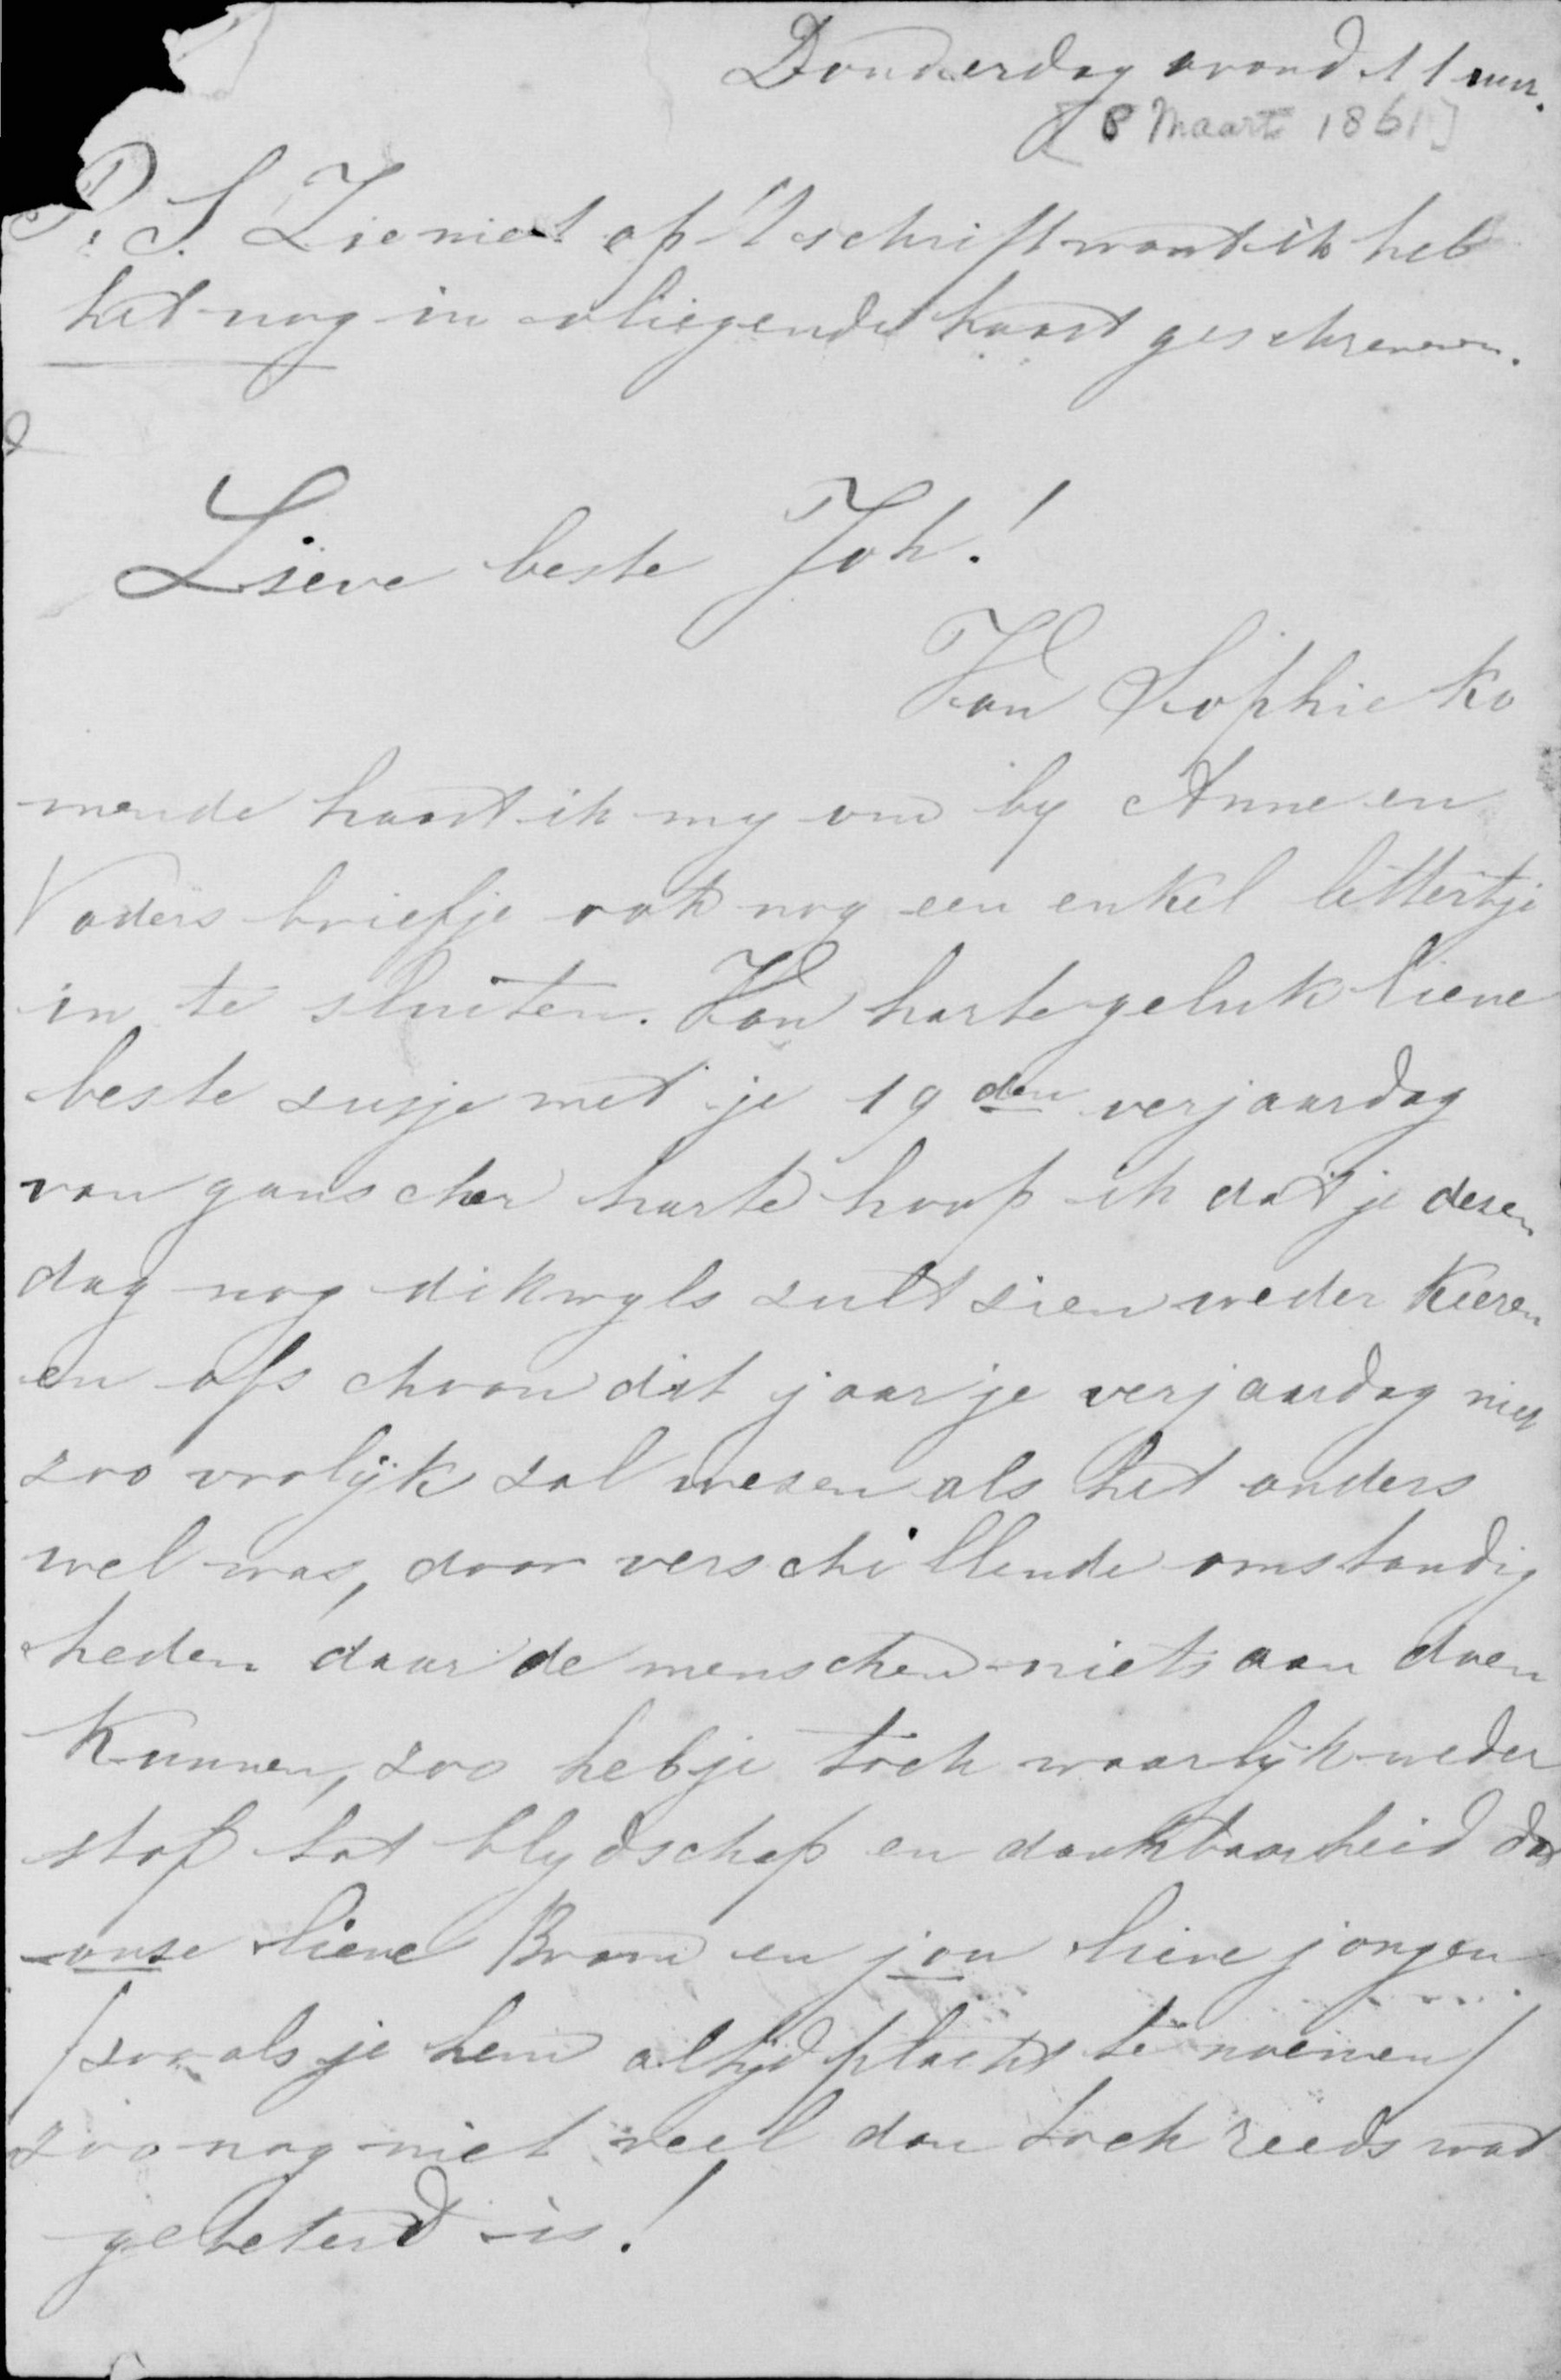 Donderdag avond 11 uur.
[8 Maart 1861]
P.S. Zie niet op 't schrift want ik heb
het nog in vliegende haast geschreven.
Lieve beste Joh!
Van Sophie ko
mende haast ik my om by Anne en
Vaders briefje ook nog een enkel lettertje
in te sluiten. Van harte geluk lieve
beste zusje met je 19den verjaardag
van ganscher harte hoop ik dat je dezen
dag nog dikwyls zult zien weder keeren
en ofschoon dit jaar je verjaardag niet
zoo vrolijk zal wezen als het anders
wel was, door verschillende omstandig
heden daar de menschen niets aan doen
kunnen, zoo heb je toch waarlijk weder
stof tot blydschap en dankbaarheid dat
onze lieve Bram en jou lieve jongen
/zoo als je hem altijd placht te noemen/
zoo nog niet veel dan toch reeds wat
gebeterd is!